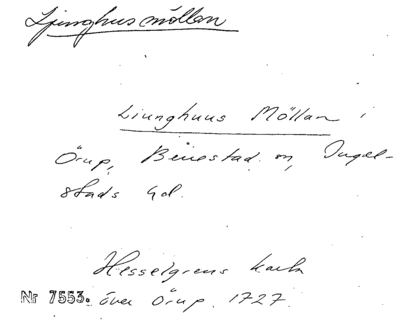 Ljunghusmöllan
Liunghuus Möllan i
Örup, Benestad sn, Ingel-
stads hd.
Hesselgrens karta
Nr 7553. över Örup. 1727.